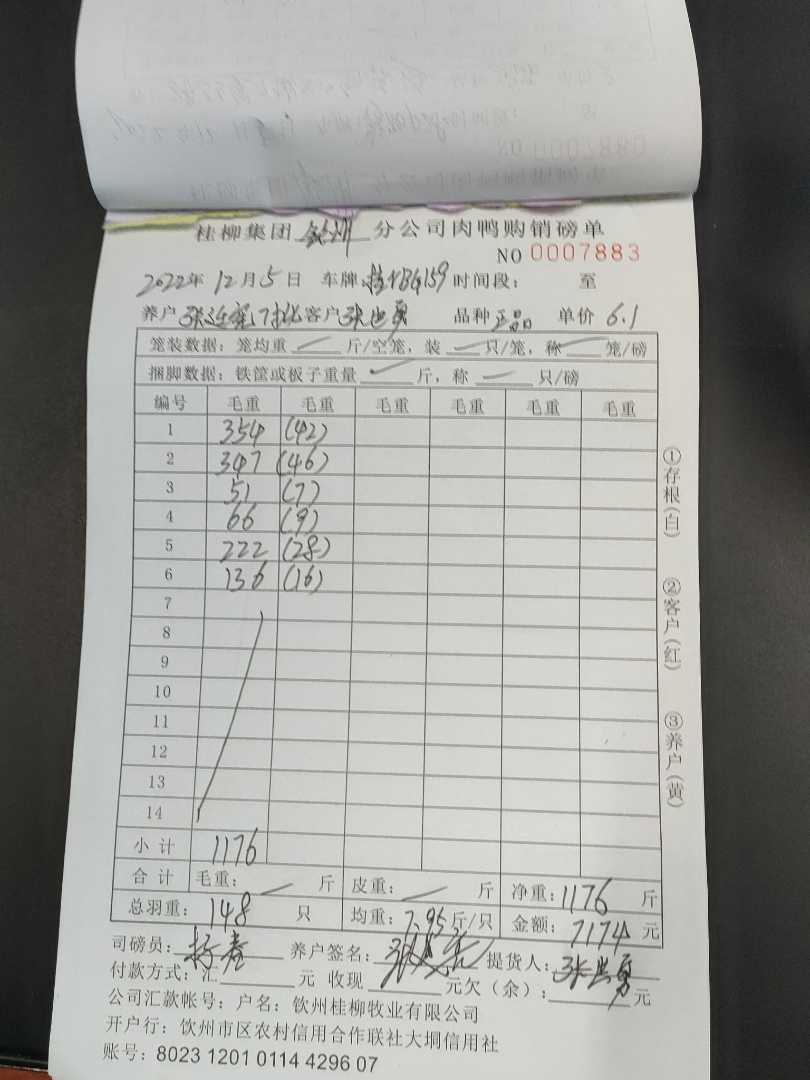 桂柳集团 钦州 分公司肉鸭购销磅单
NO 0007883
2022年 12月5日 车牌:桂YBG159 时间段: 至
养户 张 7批 客户 张世勇 品种 正品 单价 6.1
笼装数据:笼均重 斤/空笼,装 只/笼,称 笼/磅
捆脚数据:铁筐或板子重量 斤,称 只/磅
编号 毛重 毛重 毛重 毛重 毛重 毛重
1 354 (42)
2 347 (46)
3 51 (7)
4 66 (9)
5 222 (28)
6 136 (16)
7
8
9
10
11
12
13
14
小计 1176
合计 毛重: 斤 皮重: 斤 净重:1176 斤
总羽重: 148 只 均重: 7.95 斤/只 金额: 7174 元
司磅员: 杨春 养户签名: 提货人: 张世勇
付款方式:汇 元 收现 元欠(余): 元
公司汇款帐号:户名:钦州桂柳牧业有限公司
开户行:钦州市区农村信用合作联社大垌信用社
账号:8023 1201 0114 4296 07
①存根(白)
②客户(红)
③养户(黄)